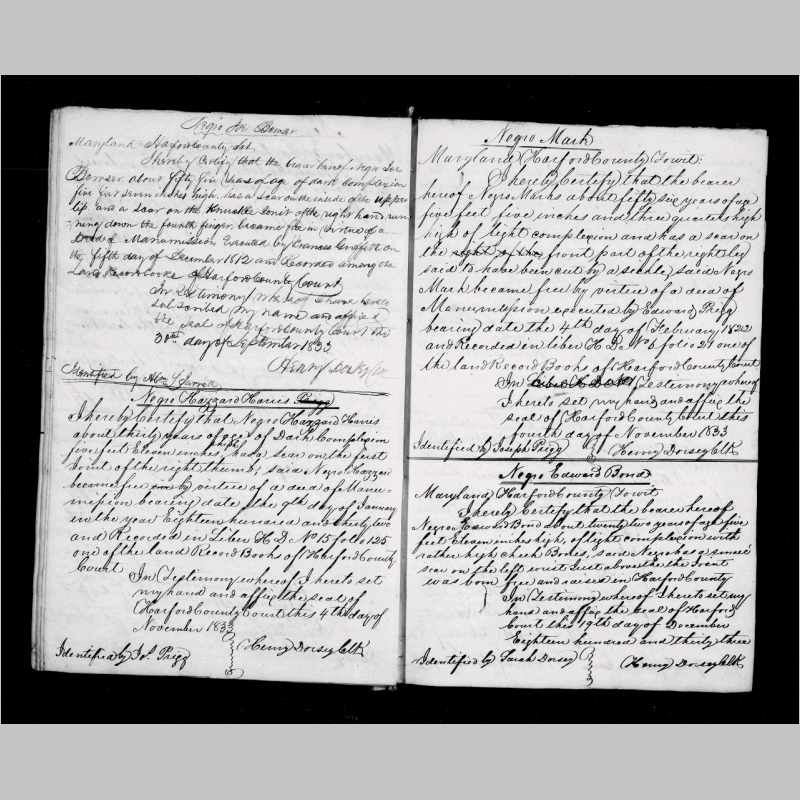 Negro Joe Bowser
Maryland Harford County Sct.
I hereby Certify that the bearer hereof Negro Joe
Bowser about fifty five years of age of dark Complexion
five feet seven inches high, has a scar on the inside of the upper
lip and a scar on the Knuckle Joint of the right hand run
ning down the fourth finger, became free in virtue of a
deed of Manumission Executed by Frances on
the fifth day of December 1812 and Recorded among the
Land Records of Harford County Court
In Testimony Whereof I have hereto
subscribed my name and affixed
the seal of Harford County Court the
30th day of September 1833
Henry Dorsey Clk
Identified by Abm. Jarrett
Negro Hazzard Harris Prigg
I hereby Certify that Negro Hazzard Harris
about thirty years of age of Dark Complexion
five feet Eleven inches, has a scar on the first
Joint of the right thumb, said Negro Hazzard
became free in by virtue of a deed of Manu-
mission bearing date the 9th day of January
in the year Eighteen hundred and thirty two
and Recorded in Liber H D No 15 folio 125
one of the land Record Books of Harford County
Court
In Testimony whereof I hereto set
my hand and affix the seal of
Harford County Court this 4th day of
November 1833
Identified by Jos. Prigg Henny Dorsey Clk
Negro Mark
Maryland Harford County Towit:
I hereby Certify that the bearer
hereof Negro Mark about fifty six years of age
five feet five inches and three quarters high
high of light complexion and has a scar on
the right of the front part of the right leg
said to have been cut by a sickle, said Negro
Mark became free by virtue of a deed of
Manumission executed by Edward Prigg
bearing date the 4th day of February 1822
and Recorded in liber H. D. No 6 folio 21 one of
the land Record Books of Harford County Court
In Testimony whereof
I hereto set my hand and affix the
seal of Harford County Court this
fourth day of November 1833
Identified by Joseph Prigg Henny Dorsey Clk
Negro Edward Bond
Maryland Harford County Towit
I hereby Certify that the bearer hereof
Negro Edward Bond about twenty two years of age five
feet Eleven inches high, of light complexion with
rather high cheek Bones, said Negro has a small
scar on the left wrist Just above the the Joint
was born free and raised in Harford County
In Testimony whereof I hereto set my
hand and affix the seal of Harford
County Court this 19th day of December
Eighteen hundred and thirty three
Identified by Sarah Dorsey Henny Dorsey Clk